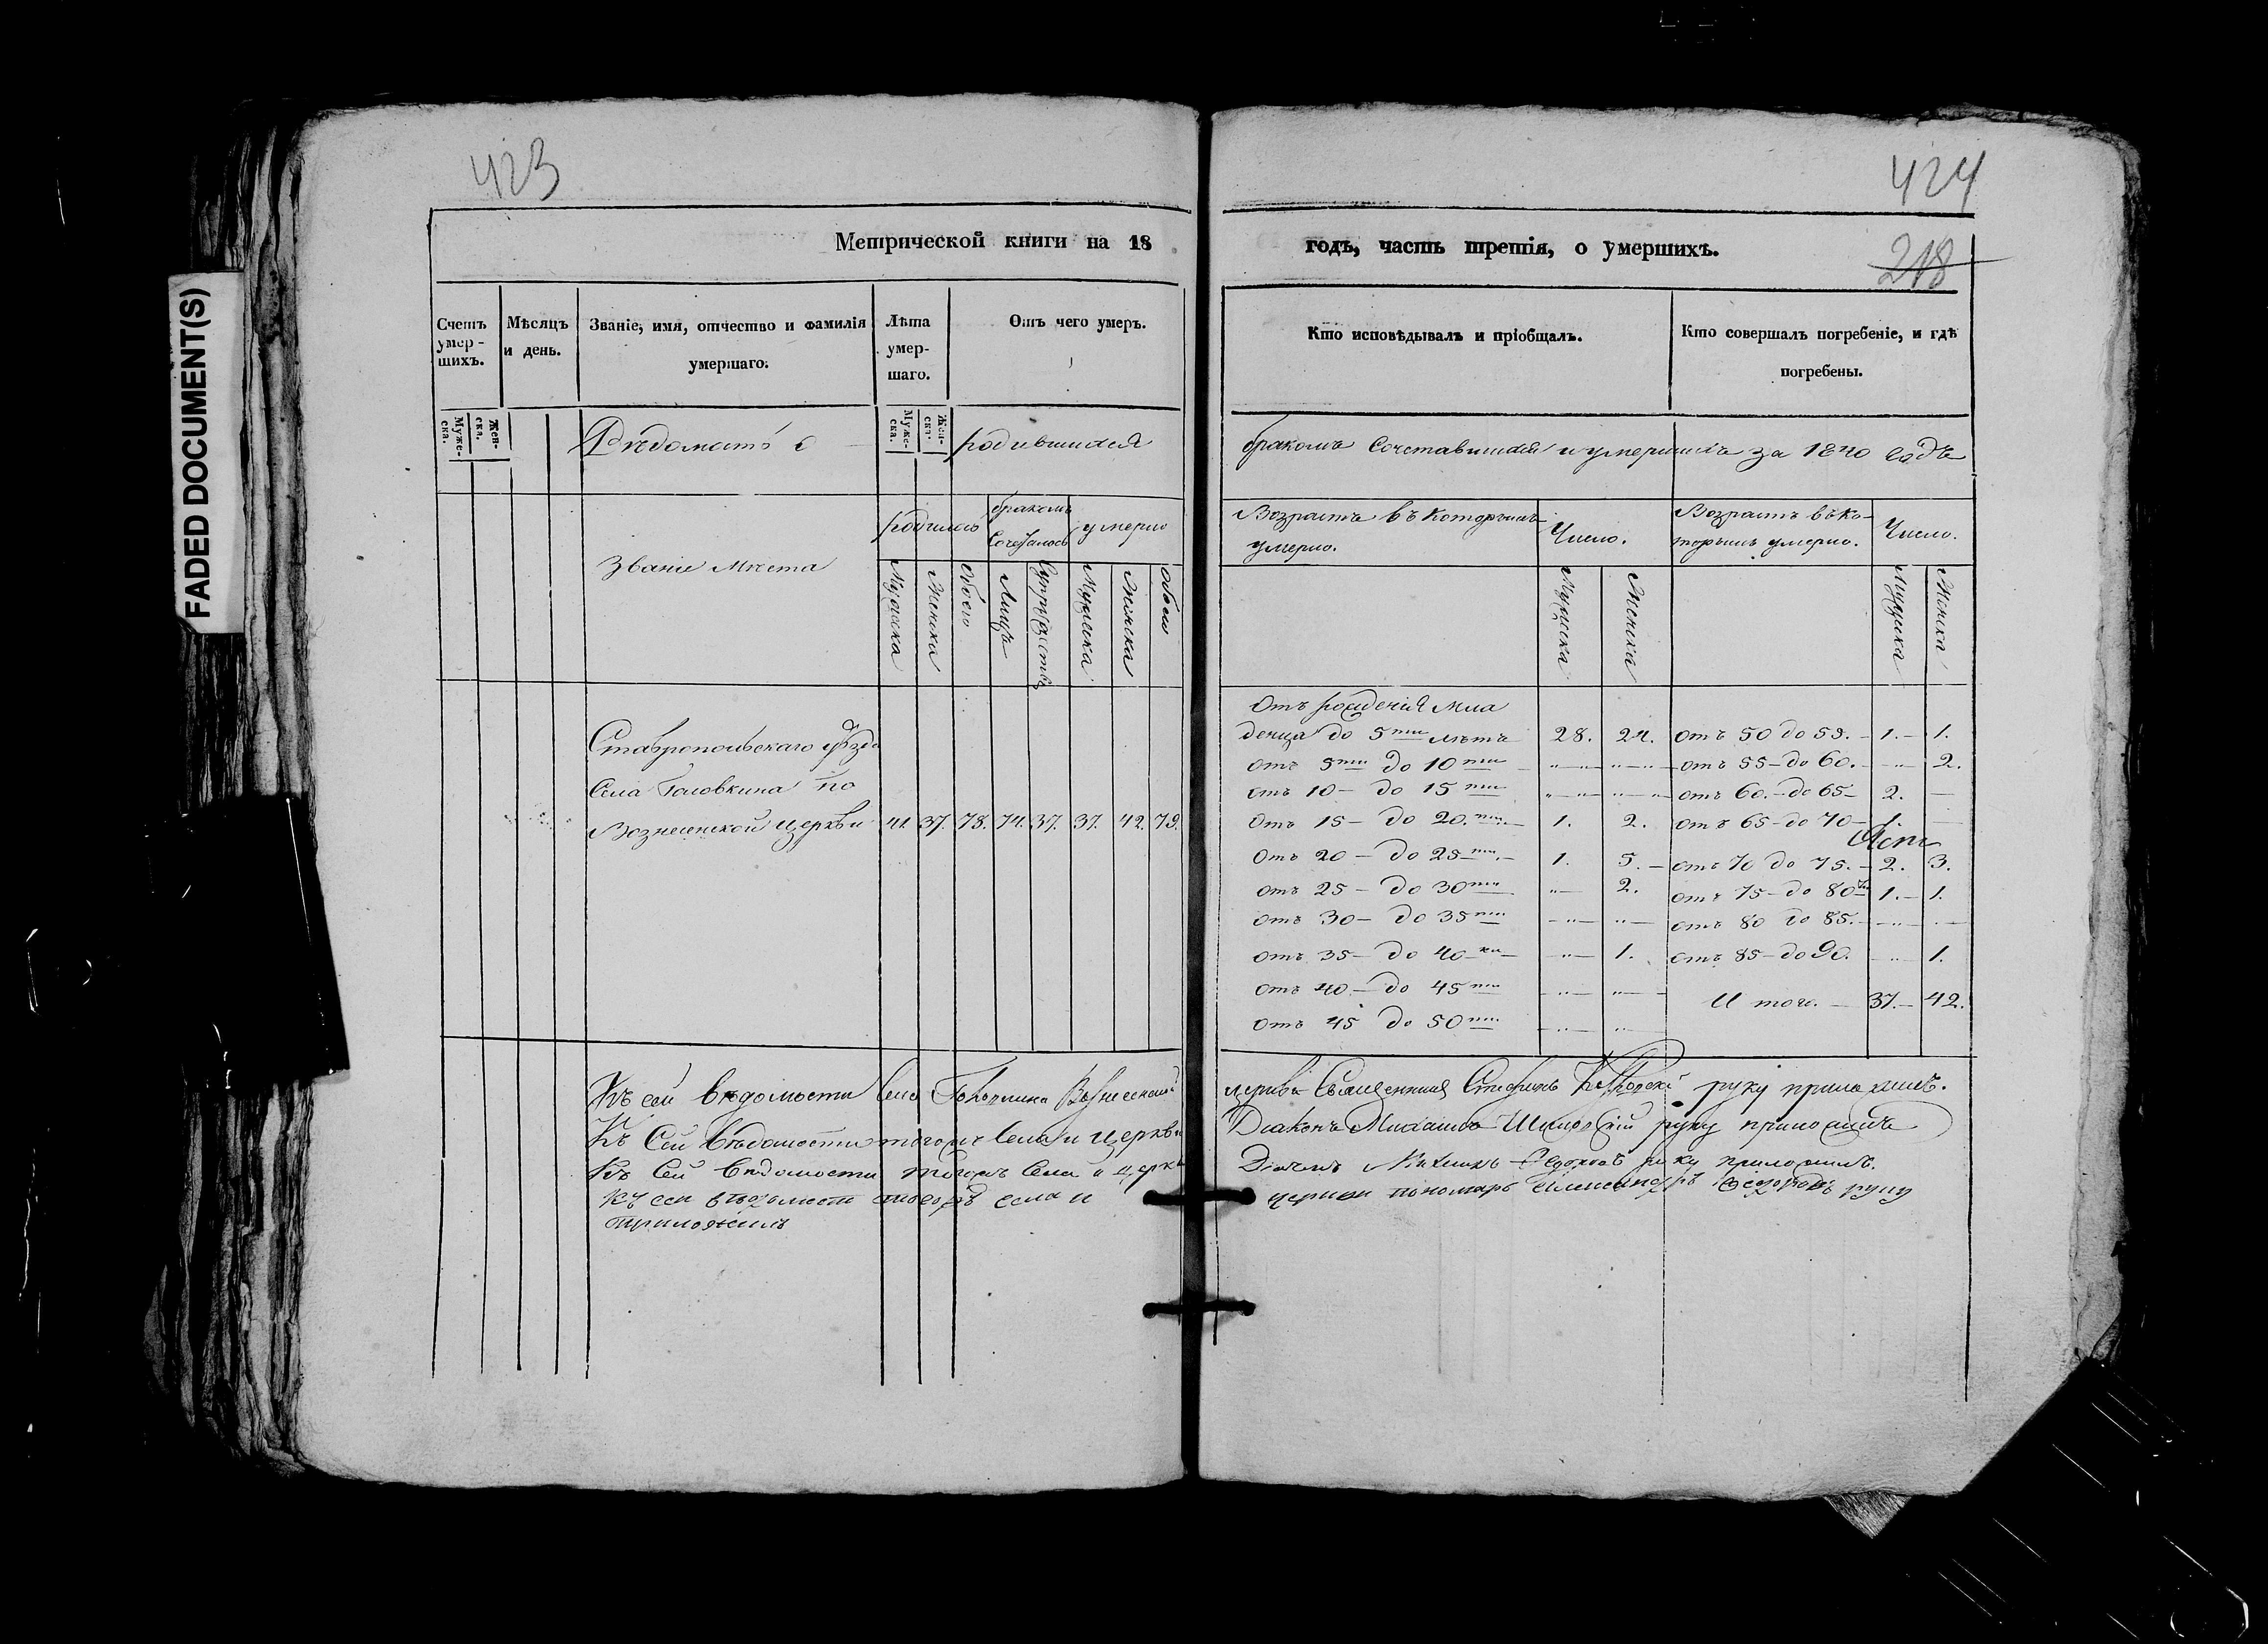 FADED DOCUMENT(S)
423
Метрической книги на 18
Счетъ умер-шихъ.
Мѣсяцъ и день.
Званіе, имя, отчество и фамилія умершаго.
Лѣта умер-шаго.
Отъ чего умеръ.
Муже-ска.
Жен-ска.
Муже-ска.
Жен-ска.
Вѣдомость о родившихся
Званіе Мѣста
родилось
бракомъ Сочеталось
умерло
Мужеска
Женска
Обоего
Лицъ
Супружествъ
Мужеска
Женска
обоего
Ставропольскаго уѣзда
Села Головкина по
Вознесенской церкви 41. 37. 78. 74. 37. 37. 42. 79.
Къ сей вѣдомости села Головкина Вознесенской
Къ Сей Вѣдомости тогожъ Села и Церкви
Къ Сей Вѣдомости тогожъ Села и церкви
Къ сей вѣдомости тогожъ села и
приложилъ
424
218
годъ, часть третія, о умершихъ.
Кто исповѣдывалъ и пріобщалъ.
Кто совершалъ погребеніе, и гдѣ погребены.
бракомъ Сочетавшихся и умершихъ за 1840 годъ
Возрастъ въ которыхъ умерло.
Число.
Возрастъ въ ко-торыхъ умерло.
Число.
Мужеска
Женска
Мужеска
Женска
Отъ рожденія мла
денца до 5ти лѣтъ 28. 24. отъ 50 до 55. 1. 1.
отъ 5ти до 10ти отъ 55 до 60. 2.
отъ 10 до 15ти отъ 60. до 65 2.
отъ 15 до 20.ти 1. 2. отъ 65 до 70 1.
отъ 20 до 25ти 1. 5. отъ 70 до 75. 2. 3.
отъ 25 до 30ти 2. отъ 75 до 80 1. 1.
отъ 30 до 35ти отъ 80 до 85.
отъ 35 до 40 1. отъ 85 до 90. 1.
отъ 40 до 45ти
Итого. 37. 42.
отъ 45 до 50ти
церкви Священникъ Стефанъ руку приложилъ.
Діаконъ Михаилъ руку приложилъ
Дьячекъ Федоровъ руку приложилъ.
церкви пономарь Александръ Федоровъ руку